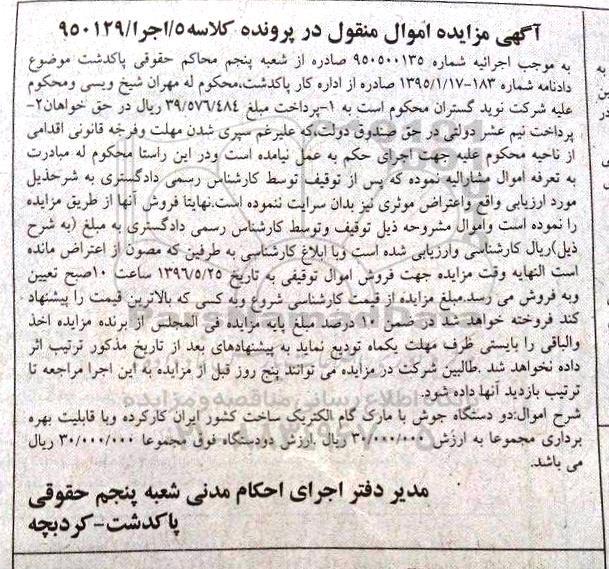 آگهی مزایده اموال منقول در پرونده کلاسه۵/اجرا/۹۵۰۱۲۹
به موجب اجرائیه شماره ۹۵۰۵۰۰۱۳۵ صادره از شعبه پنجم محاکم حقوقی پاکدشت موضوع
دادنامه شماره ۱۸۳-۱۳۹۵/۱/۱۷ صادره از اداره کار پاکدشت،محکوم له مهران شیخ ویسی ومحکوم
علیه شرکت نوید گستران محکوم است به ۱-پرداخت مبلغ ۳۹/۵۷۶/۴۸۴ ریال در حق خواهان۲-
پرداخت نیم عشر دولتی در حق صندوق دولت،که علیرغم سپری شدن مهلت وفرجه قانونی اقدامی
از ناحیه محکوم علیه جهت اجرای حکم به عمل نیامده است ودر این راستا محکوم له مبادرت
به تعرفه اموال مشارالیه نموده که پس از توقیف توسط کارشناس رسمی دادگستری به شرحذیل
مورد ارزیابی واقع واعتراض موثری نیز بدان سرایت ننموده است.نهایتا فروش آنها از طریق مزایده
را نموده است واموال مشروحه ذیل توقیف وتوسط کارشناس رسمی دادگستری به مبلغ (به شرح
ذیل)ریال کارشناسی وارزیابی شده است وبا ابلاغ کارشناسی به طرفین که مصون از اعتراض مانده
است النهایه وقت مزایده جهت فروش اموال توقیفی به تاریخ ۱۳۹۶/۵/۲۵ ساعت ۱۰صبح تعیین
وبه فروش می رسد.مبلغ مزایده از قیمت کارشناسی شروع وبه کسی که بالاترین قیمت را پیشنهاد
کند فروخته خواهد شد در ضمن ۱۰درصد مبلغ پایه مزایده فی المجلس از برنده مزایده اخذ
والباقی را بایستی ظرف مهلت یکماه تودیع نماید به پیشنهادهای بعد از تاریخ مذکور ترتیب اثر
داده نخواهد شد .طالبین شرکت در مزایده می توانند پنج روز قبل از مزایده به این اجرا مراجعه تا
ترتیب بازدید آنها داده شود.
شرح اموال:دو دستگاه جوش با مارک گام الکتریک ساخت کشور ایران کارکرده وبا قابلیت بهره
برداری مجموعا به ارزش ۳۰/۰۰۰/۰۰۰ ریال .ارزش دودستگاه فوق مجموعا ۳۰/۰۰۰/۰۰۰ ریال
می باشد.
مدیر دفتر اجرای احکام مدنی شعبه پنجم حقوقی
پاکدشت-کردبچه
ParsNamadData